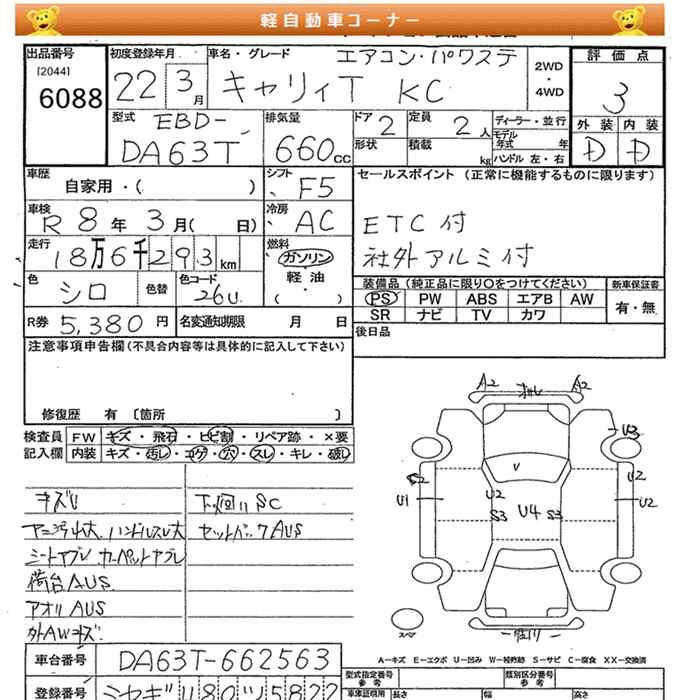 軽自動車コーナー
出品番号
[2044]
6088
初度登録年月
22 3月
車名・グレード
エアコン・パワステ
キャリィT KC
2WD
・
4WD
評価点
3
外装 内装
D D
型式
EBD-
DA63T
排気量
660cc
ドア 2
形状
定員 2人
積載 kg
ディーラー・並行
モデル年式 年
ハンドル 左・右
車歴
自家用・( )
シフト
F5
セールスポイント (正常に機能するものに限ります)
ETC付
社外アルミ付
車検
R8年3月( 日)
冷房
AC
走行
18万6千293km
燃料
ガソリン
軽油
・( )
色
シロ
色替
色コード
26U
装備品 (純正品に限り○をつけてください)
PS PW ABS エアB AW
SR ナビ TV カワ
新車保証書
有・無
R券 5,380円
名変通知期限 月 日
後日品
注意事項申告欄(不具合内容等は具体的に記入して下さい)
修復歴 有 〔箇所 〕
検査員
記入欄
FW キズ・飛石・ヒビ割・リペア跡・×要
内装 キズ・汚レ・コゲ・穴・スレ・キレ・破レ
キズU
下回りSC
ハンドルスレ大
セットバックAUS
荷台AUS
アオリAUS
外AWキズ
A2 A2
U3
U2
U2
U1
U2
S3 U4 S3
スペア
A-キズ E-エクボ U-凹み W-補修跡 S-サビ C-腐食 XX-交換済
車台番号
DA63T-662563
登録番号
型式指定番号
参考
類別区分番号
参考
車庫証明用
長さ
幅
高さ